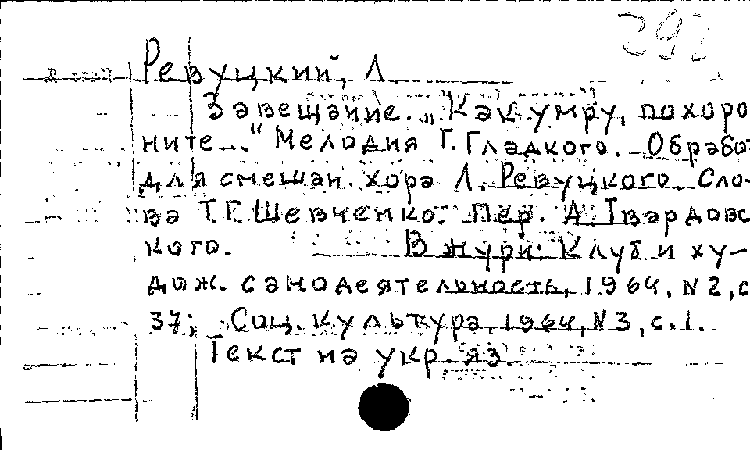 292
Ревуцкий, Л.
Завещание. „Как умру, похоро-
ните..." Мелодия Г. Гладкого. Обработ.
для смешан. хора Л. Ревуцкого. Сло-
ва Т.Г. Шевченко. Пер. А. Твардовс-
кого. В журн: Клуб и ху-
дож. самодеятельность, 1964, N2, с.
37; Соц. культура, 1964, N3, с. 1.
Текст на укр. яз.